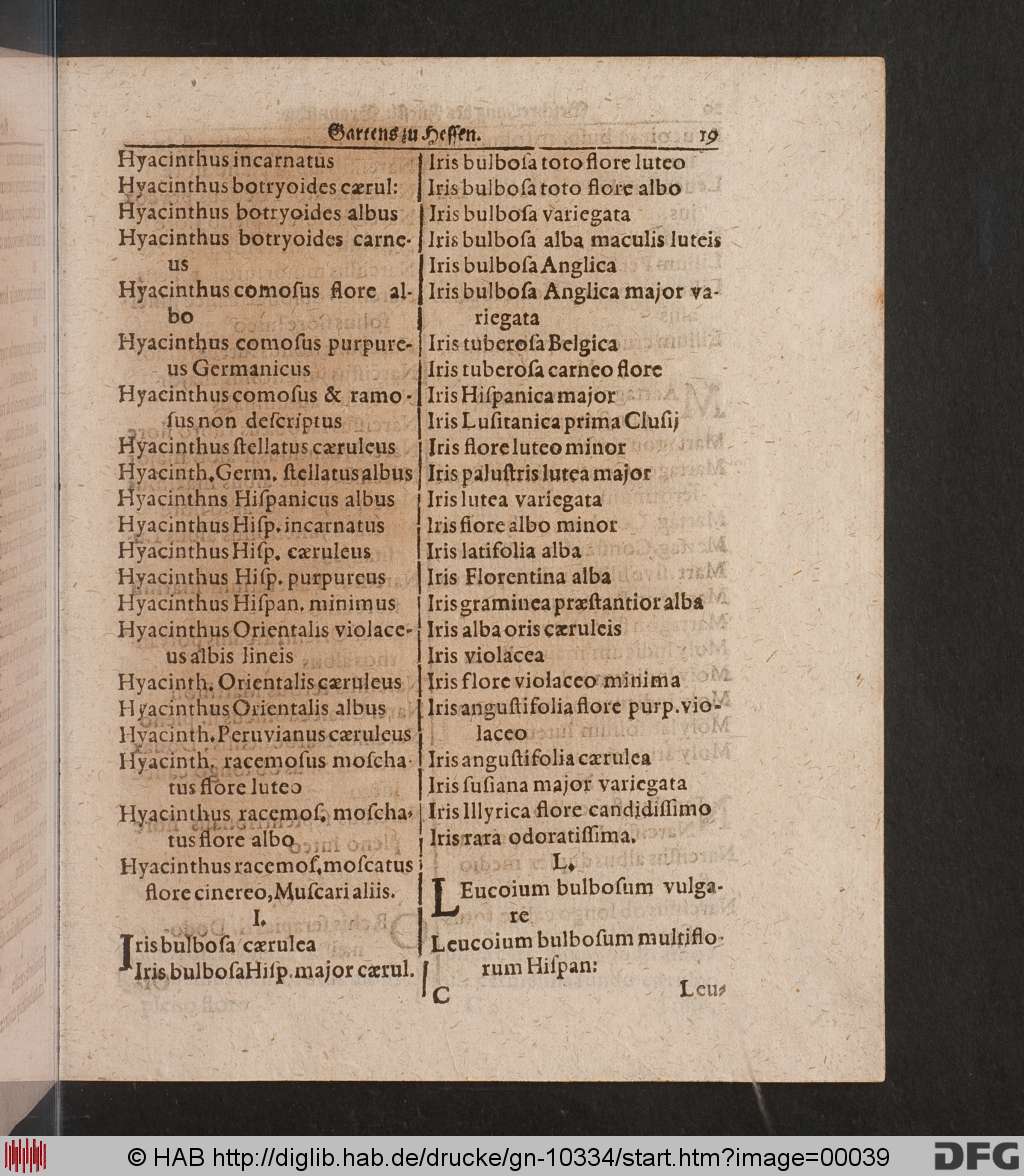 Gartens zu Hessen. 19
Hyacinthus incarnatus
Hyacinthus botryoides cærul:
Hyacinthus botryoides albus
Hyacinthus botryoides carne-
us
Hyacinthus comoſus flore al-
bo
Hyacinthus comoſus purpure-
us Germanicus
Hyacinthus comoſus & ramo-
ſus non deſcriptus
Hyacinthus ſtellatus cæruleus
Hyacinth. Germ. ſtellatus albus
Hyacinthns Hiſpanicus albus
Hyacinthus Hiſp. incarnatus
Hyacinthus Hiſp. cæruleus
Hyacinthus Hiſp. purpureus
Hyacinthus Hiſpan. minimus
Hyacinthus Orientalis violace-
us albis lineis
Hyacinth. Orientalis cæruleus
Hyacinthus Orientalis albus
Hyacinth. Peruvianus cæruleus
Hyacinth. racemoſus moſcha-
tus flore luteo
Hyacinthus racemoſ. moſcha-
tus flore albo
Hyacinthus racemoſ. moſcatus
flore cinereo, Muſcari aliis.
I.
Iris bulboſa cærulea
Iris bulboſa Hiſp. major cærul.
Iris bulboſa toto flore luteo
Iris bulboſa toto flore albo
Iris bulboſa variegata
Iris bulboſa alba maculis luteis
Iris bulboſa Anglica
Iris bulboſa Anglica major va-
riegata
Iris tuberoſa Belgica
Iris tuberoſa carneo flore
Iris Hiſpanica major
Iris Luſitanica prima Cluſij
Iris flore luteo minor
Iris paluſtris lutea major
Iris lutea variegata
Iris flore albo minor
Iris latifolia alba
Iris Florentina alba
Iris graminea præſtantior alba
Iris alba oris cæruleis
Iris violacea
Iris flore violaceo minima
Iris anguſtifolia flore purp. vio-
laceo
Iris anguſtifolia cærulea
Iris ſuſiana major variegata
Iris Illyrica flore candidiſſimo
Iris rara odoratiſſima.
L.
LEucoium bulboſum vulga-
re
Leucoium bulboſum multiflo-
rum Hiſpan:
C Leu-
© HAB http://diglib.hab.de/drucke/gn-10334/start.htm?image=00039
DFG